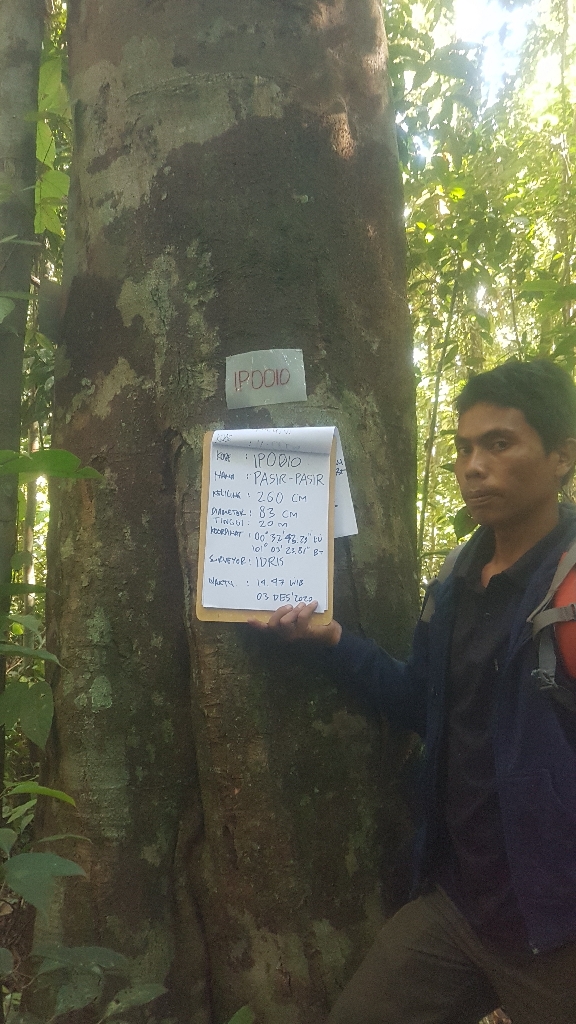 IP0010
KODE : IP0010
NAMA : PASIR-PASIR
KELILING : 260 CM
DIAMETER : 83 CM
TINGGI : 20 M
KOORDINAT : 00° 52' 48.73" LU
101° 03' 23.81" BT
SURVEYOR : IDRIS
WAKTU : 14.47 WIB
03 DES 2020